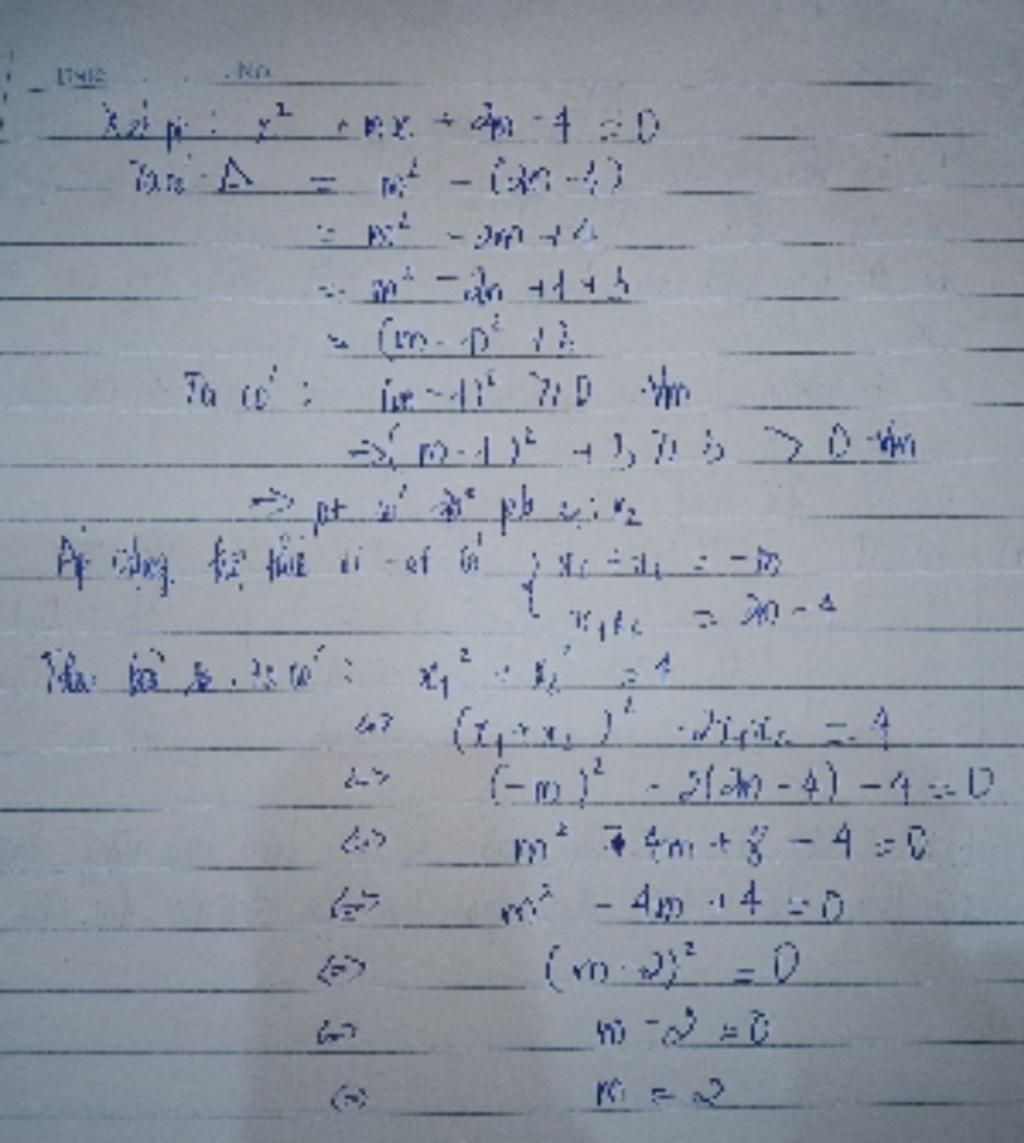 No
Xét pt : x² + mx + 2m - 4 = 0
Ta có Δ = m² - (2m - 4)
= m² - 2m + 4
= m² - 2m + 1 + 3
= (m - 1)² + 3
Ta có : (m - 1)² ⩾ 0 ∀m
→ (m - 1)² + 3 ⩾ 3 > 0 ∀m
=> pt có 2 n° pb x₁ ; x₂
Áp dụng hệ thức vi - et có { x₁ + x₂ = -m
x₁x₂ = 2m - 4
Theo bài ta có : x₁² + x₂² = 4
<=> (x₁ + x₂)² - 2x₁x₂ = 4
<=> (-m)² - 2(2m - 4) - 4 = 0
<=> m² - 4m + 8 - 4 = 0
<=> m² - 4m + 4 = 0
<=> (m - 2)² = 0
<=> m - 2 = 0
<=> m = 2